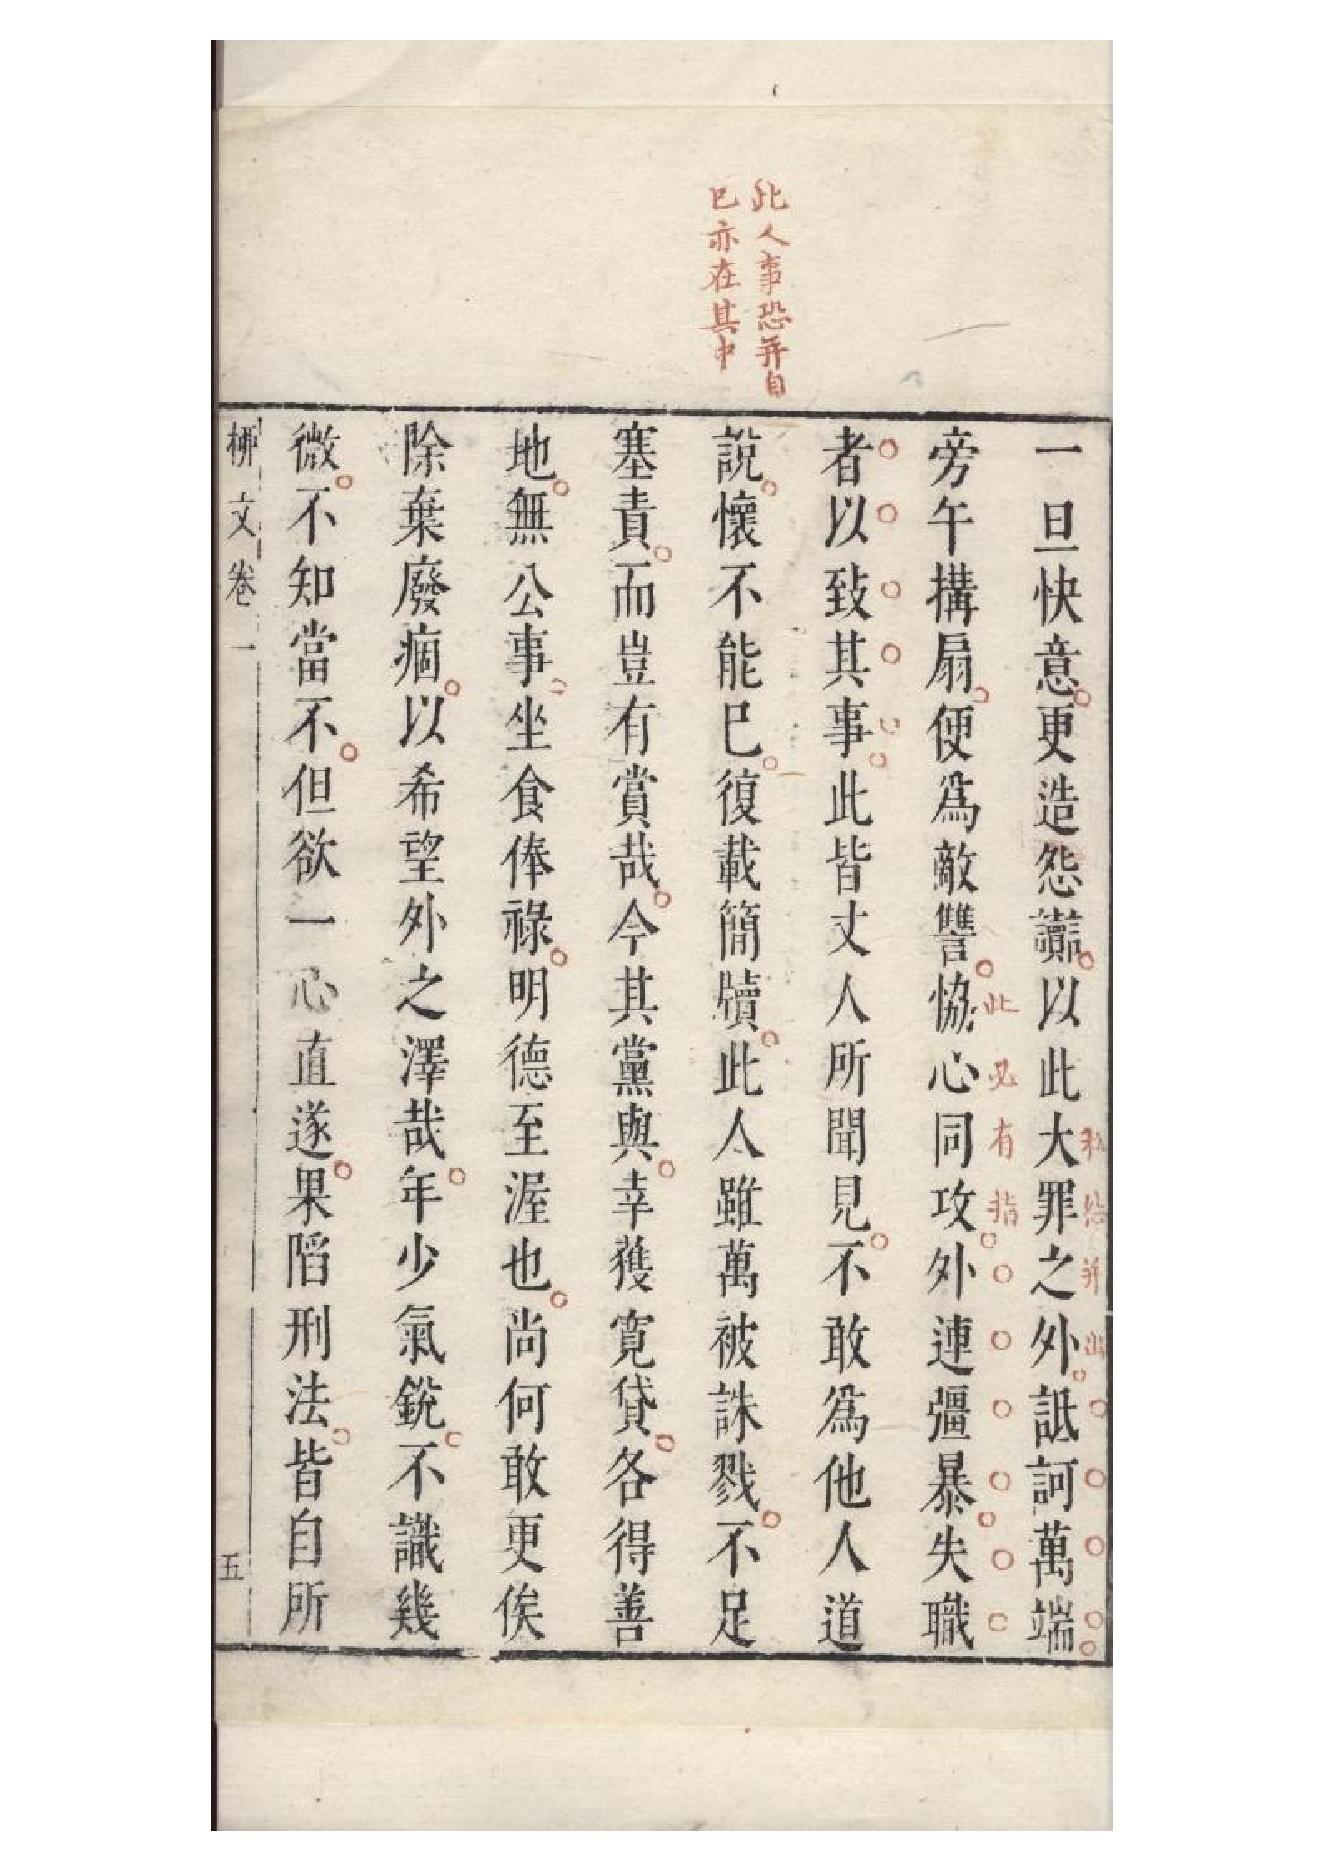 此人事恐并自
已亦在其中
一旦快意更造怨讟以此大罪之外詆訶萬端
旁午搆扇便爲敵讐恊心同攻外連彊暴失職
此必有指
者以致其事此皆丈人所聞見不敢爲他人道
說懷不能已復載簡牘此人雖萬被誅戮不足
塞責而豈有賞哉今其黨與幸獲寛貸各得善
地無公事坐食俸祿明德至渥也尚何敢更俟
除棄廢痼以希望外之澤哉年少氣銳不識幾
微不知當不但欲一心直遂果陷刑法皆自所
柳文卷一
五